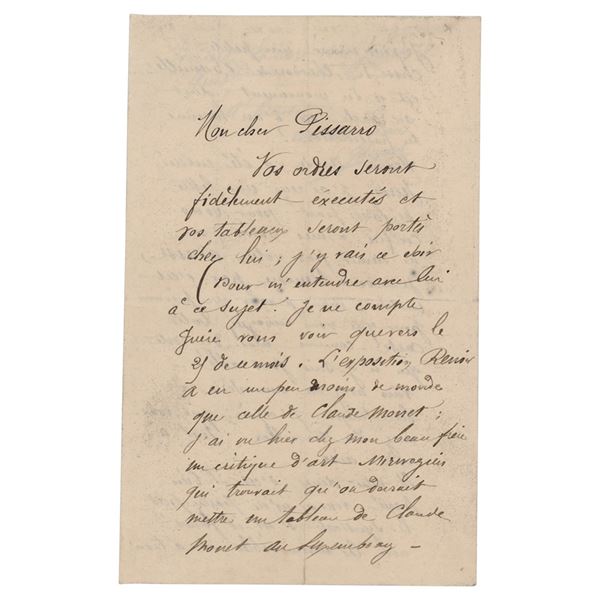 Mon cher Pissarro
Vos ordres seront
fidèlement éxecutés et
vos tableaux seront portés
chez lui ; j'y vais ce soir
(pour m'entendre avec lui
à ce sujet. Je ne compte
guère vous voir que vers le
25 de ce mois. L'exposition Renoir
a eu un peu moins de monde
que celle de Claude Monet ;
j'ai vu hier chez mon beau frère
un critique d'art
qui trouvait qu'on devrait
mettre un tableau de Claude
Monet au Luxembourg –